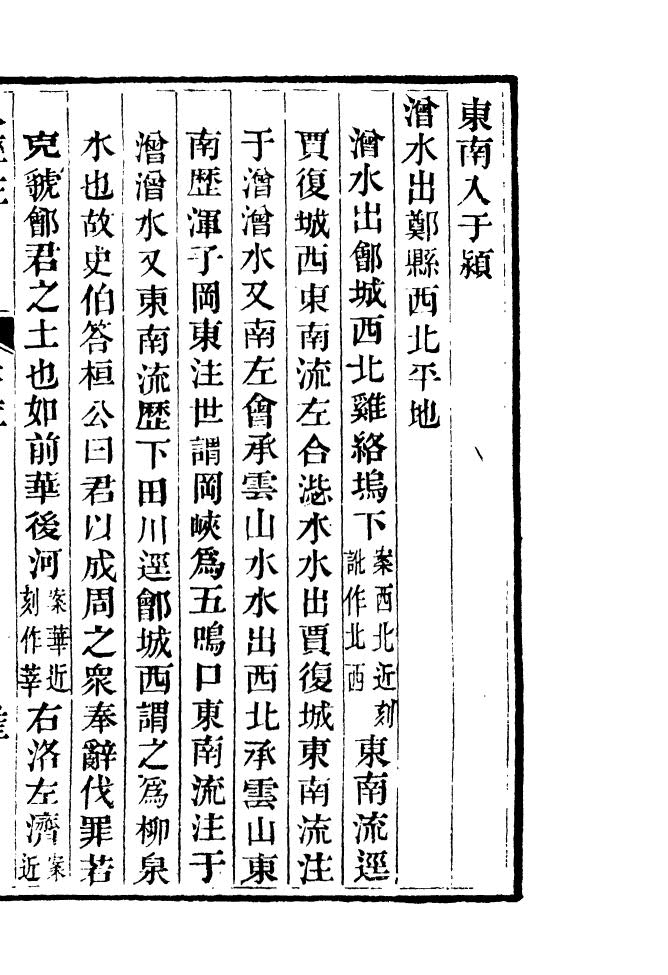 東南入于潁
潧水出鄭縣西北平地
潧水出鄶城西北雞絡塢下案西北近刻訛作北西東南流逕
賈復城西東南流左合㴲水水出賈復城東南流注
于潧潧水又南左會承雲山水水出西北承雲山東
南歷渾子岡東注世謂岡峽爲五鳴口東南流注于
潧潧水又東南流歷下田川逕鄶城西謂之爲柳泉
水也故史伯答桓公曰君以成周之衆奉辭伐罪若
克虢鄶君之土也如前華後河案華近刻作莘右洛左濟案近